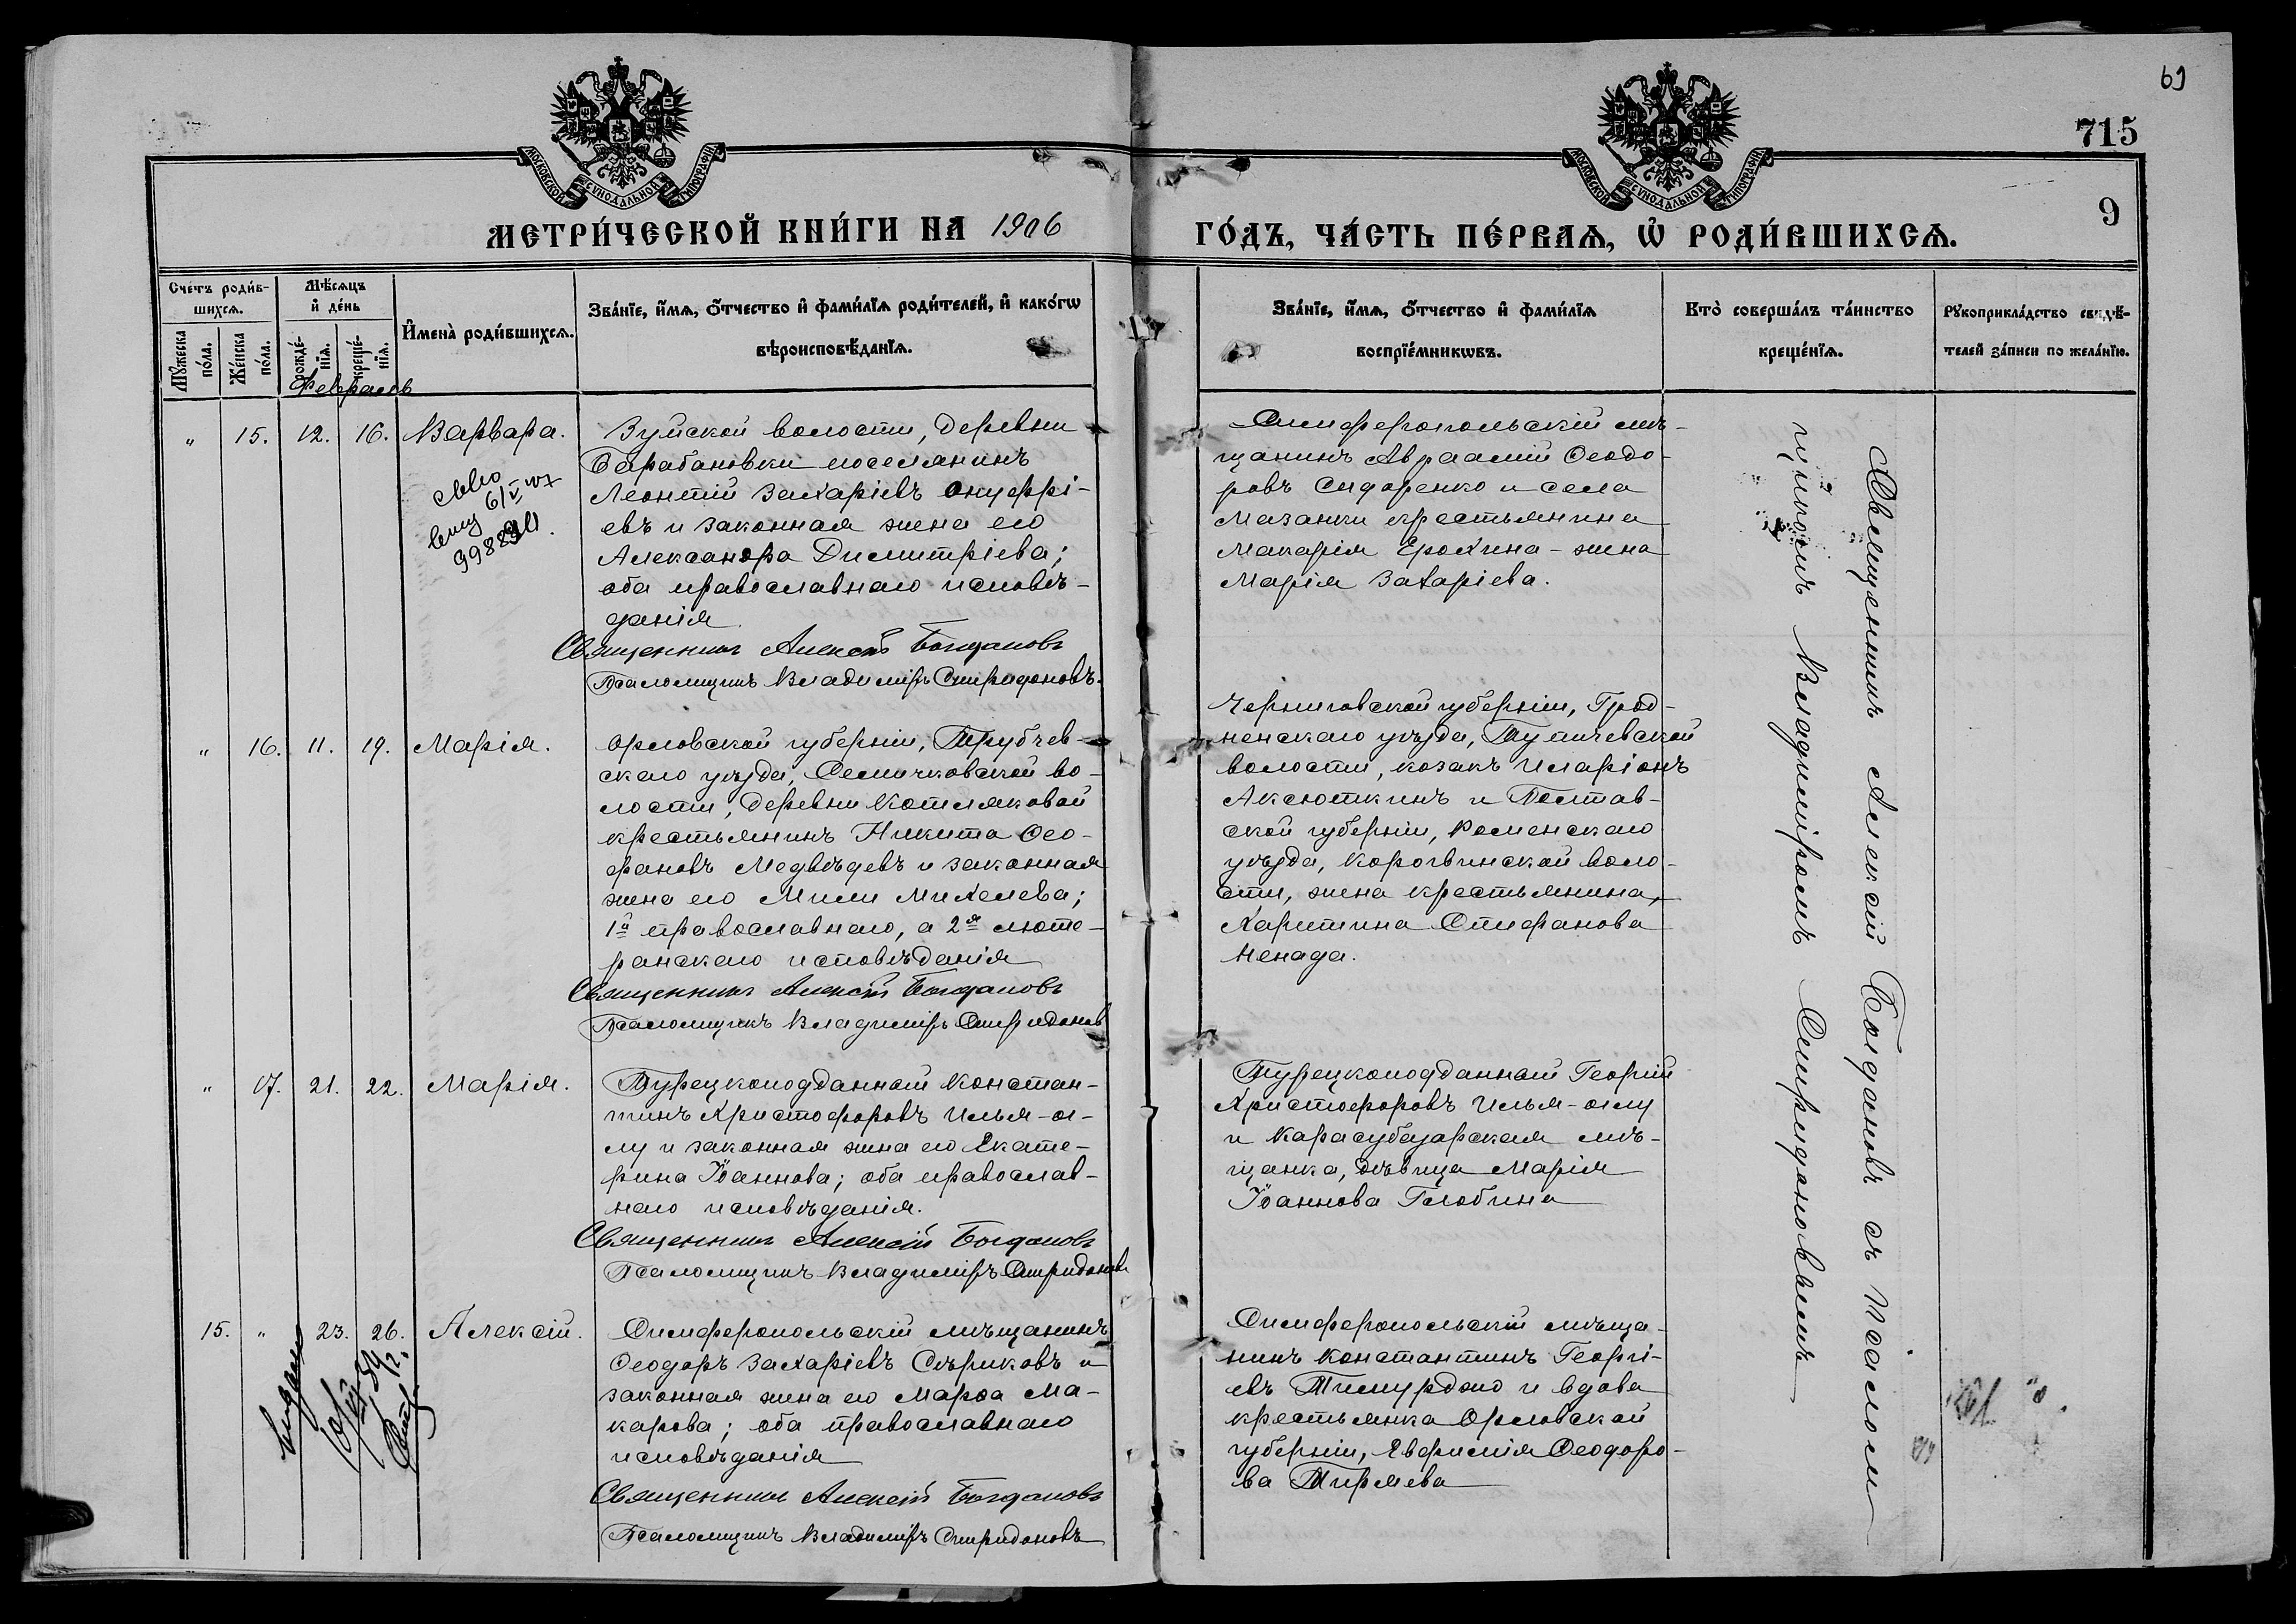 69
715
9
МОСКОВСКОЙ СѴНОДАЛЬНОЙ ТИПОГРАФІИ
МОСКОВСКОЙ СѴНОДАЛЬНОЙ ТИПОГРАФІИ
МЕТРИ́ЧЕСКОЙ КНИ́ГИ НА 1906
ГО́ДЪ, ЧА́СТЬ ПЕ́РВАѦ, Ѡ҆ РОДИ́ВШИХСѦ.
Сче́тъ роди́в-
шихсѧ.
Мѹ́жеска
по́ла.
Же́нска
по́ла.
Мѣ́сѧцъ
и҆ де́нь
рожде́-
нїѧ.
креще́-
нїѧ.
Февраль
И҆мена̀ роди́вшихсѧ.
Зва́нїе, и҆́мѧ, ѻ҆́тчество и҆ фами́лїѧ роди́телей, и҆ како́гѡ
вѣроисповѣ́данїѧ.
Зва́нїе, и҆́мѧ, ѻ҆́тчество и҆ фами́лїѧ
воспрїе́мникѡвъ.
Кто̀ соверша́лъ та́инство
креще́нїѧ.
Рѹкоприкла́дство свидѣ́-
телей за́писи по жела́нїю.
" 15. 12. 16. Варвара.
Зуйской волости, деревни
Барабановки поселянинъ
Леонтій Захаріевъ Онуфрі-
евъ и законная жена его
Александра Димитріева;
оба православнаго исповѣ-
данія
Священникъ Алексій Богдановъ
Псаломщикъ Владиміръ Спиридоновъ.
Симферопольскій мѣ-
щанинъ Авраамій Ѳеодо-
ровъ Сидоренко и села
Мазанки крестьянина
Макарія Ерохина - жена
Марія Захаріева.
" 16. 11. 19. Марія.
Орловской губерніи, Трубчев-
скаго уѣзда, Селичковской во-
лости, деревни Котляковой
крестьянинъ Никита Ѳео-
фановъ Медвѣдевъ и законная
жена его Мили Михелева;
1й православнаго, а 2я люте-
ранскаго исповѣданія
Священникъ Алексій Богдановъ
Псаломщикъ Владиміръ Спиридоновъ
Черниговской губерніи, Грод-
ненскаго уѣзда, Тупичевской
волости, козакъ Иларіонъ
Аксюткинъ и Полтав-
ской губерніи, Роменскаго
уѣзда, Коровинской воло-
сти, жена крестьянина,
Харитина Стефанова
Ненада.
" 17. 21. 22. Марія.
Турецкоподданный Констан-
тинъ Христофоровъ Илья-ог-
лу и законная жена его Екате-
рина Іоаннова; оба православ-
наго исповѣданія.
Священникъ Алексій Богдановъ
Псаломщикъ Владиміръ Спиридоновъ
Турецкоподданный Георгій
Христофоровъ Илья-оглу
и Карасубазарская мѣ-
щанка, дѣвица Марія
Іоаннова Голобина
15. " 23. 26. Алексій.
Симферопольскій мѣщанинъ
Ѳеодоръ Захаріевъ Сѣриковъ и
законная жена его Марѳа Ма-
карова; оба православнаго
исповѣданія
Священникъ Алексій Богдановъ
Псаломщикъ Владиміръ Спиридоновъ
Симферопольскій мѣща-
нинъ Константинъ Георгі-
евъ Тимурджо и вдова
крестьянка Орловской
губерніи, Евфимія Ѳеодоро-
ва Тиряева
Священникъ Алексій Богдановъ съ псалом
щикомъ Владиміромъ Спиридоновымъ